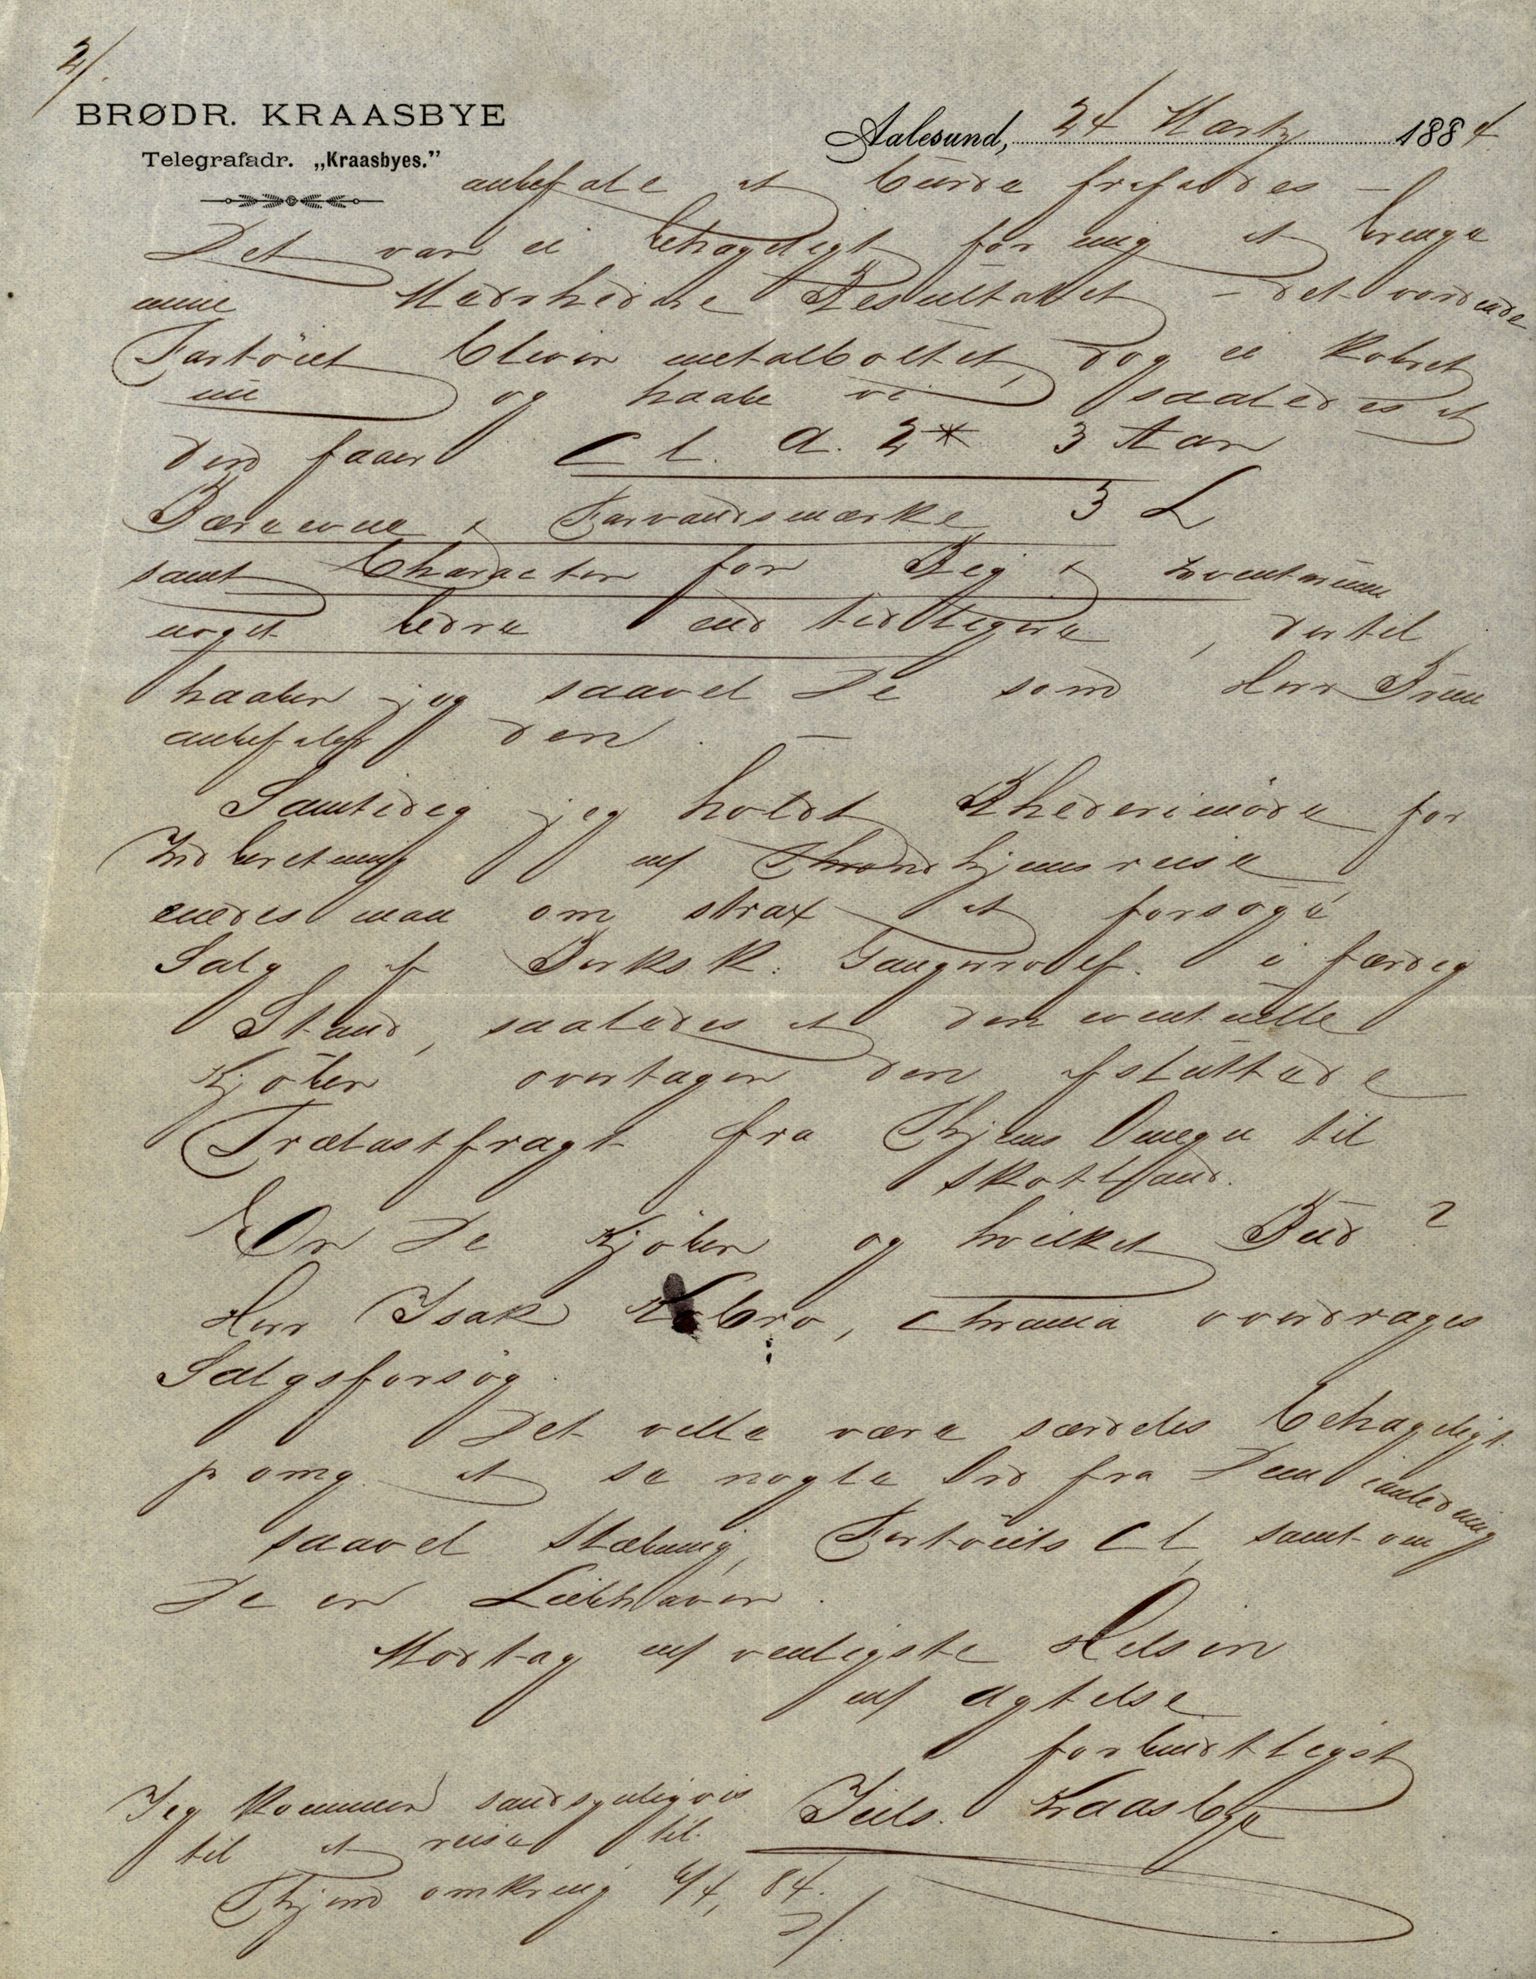 2/.
BRØDR. KRAASBYE
Telegrafadr. „Kraasbyes.”
Aalesund, 24 Marts 1884.
anbefale at burde frafaldes –
Det var ei behageligt for mig at bringe
mine Medrhedere Resultatet – det vordende
Fartöiet bliver metalboltet, dog ei kobret
nu og haabe vi saaledes at
den faaer Cl. A. 2* 3 Aar
Bæreevne & Farvandsmærke 3 L
samt Character for Rig & Inventarium
noget bedre end tidligere, dertil
haaber jeg saavel De som Herr Bruun
anbefaler den. –
Samtidig jeg holdt Rhederimöde for
Indberetning m/ Throndhjemsreise
enedes man om strax at forsöge
Salg af Barksk. Ganger Rolf. i færdig
Stand, saaledes at den eventuelle
Kjöber overtager den afsluttede
Trælastfragt fra Thjems Omegn til
Skotland.
Er De Kjöber og hvilket Bud?
Herr Isak Kobro, Chrania overdrages
Salgsforsög.
Det ville være særdeles behageligt
p omg at se nogle Ord fra Dem i anledning
saavel Stævning, Fartöiets Cl, samt om
De er Liebhaver.
Modtag m/ venligste Hilsen
m/ Agtelse
forbindtligst
Jeg kommer sandsynligvis
Kraasbye
til at reise til
Thjem omkring 6/4, 84.